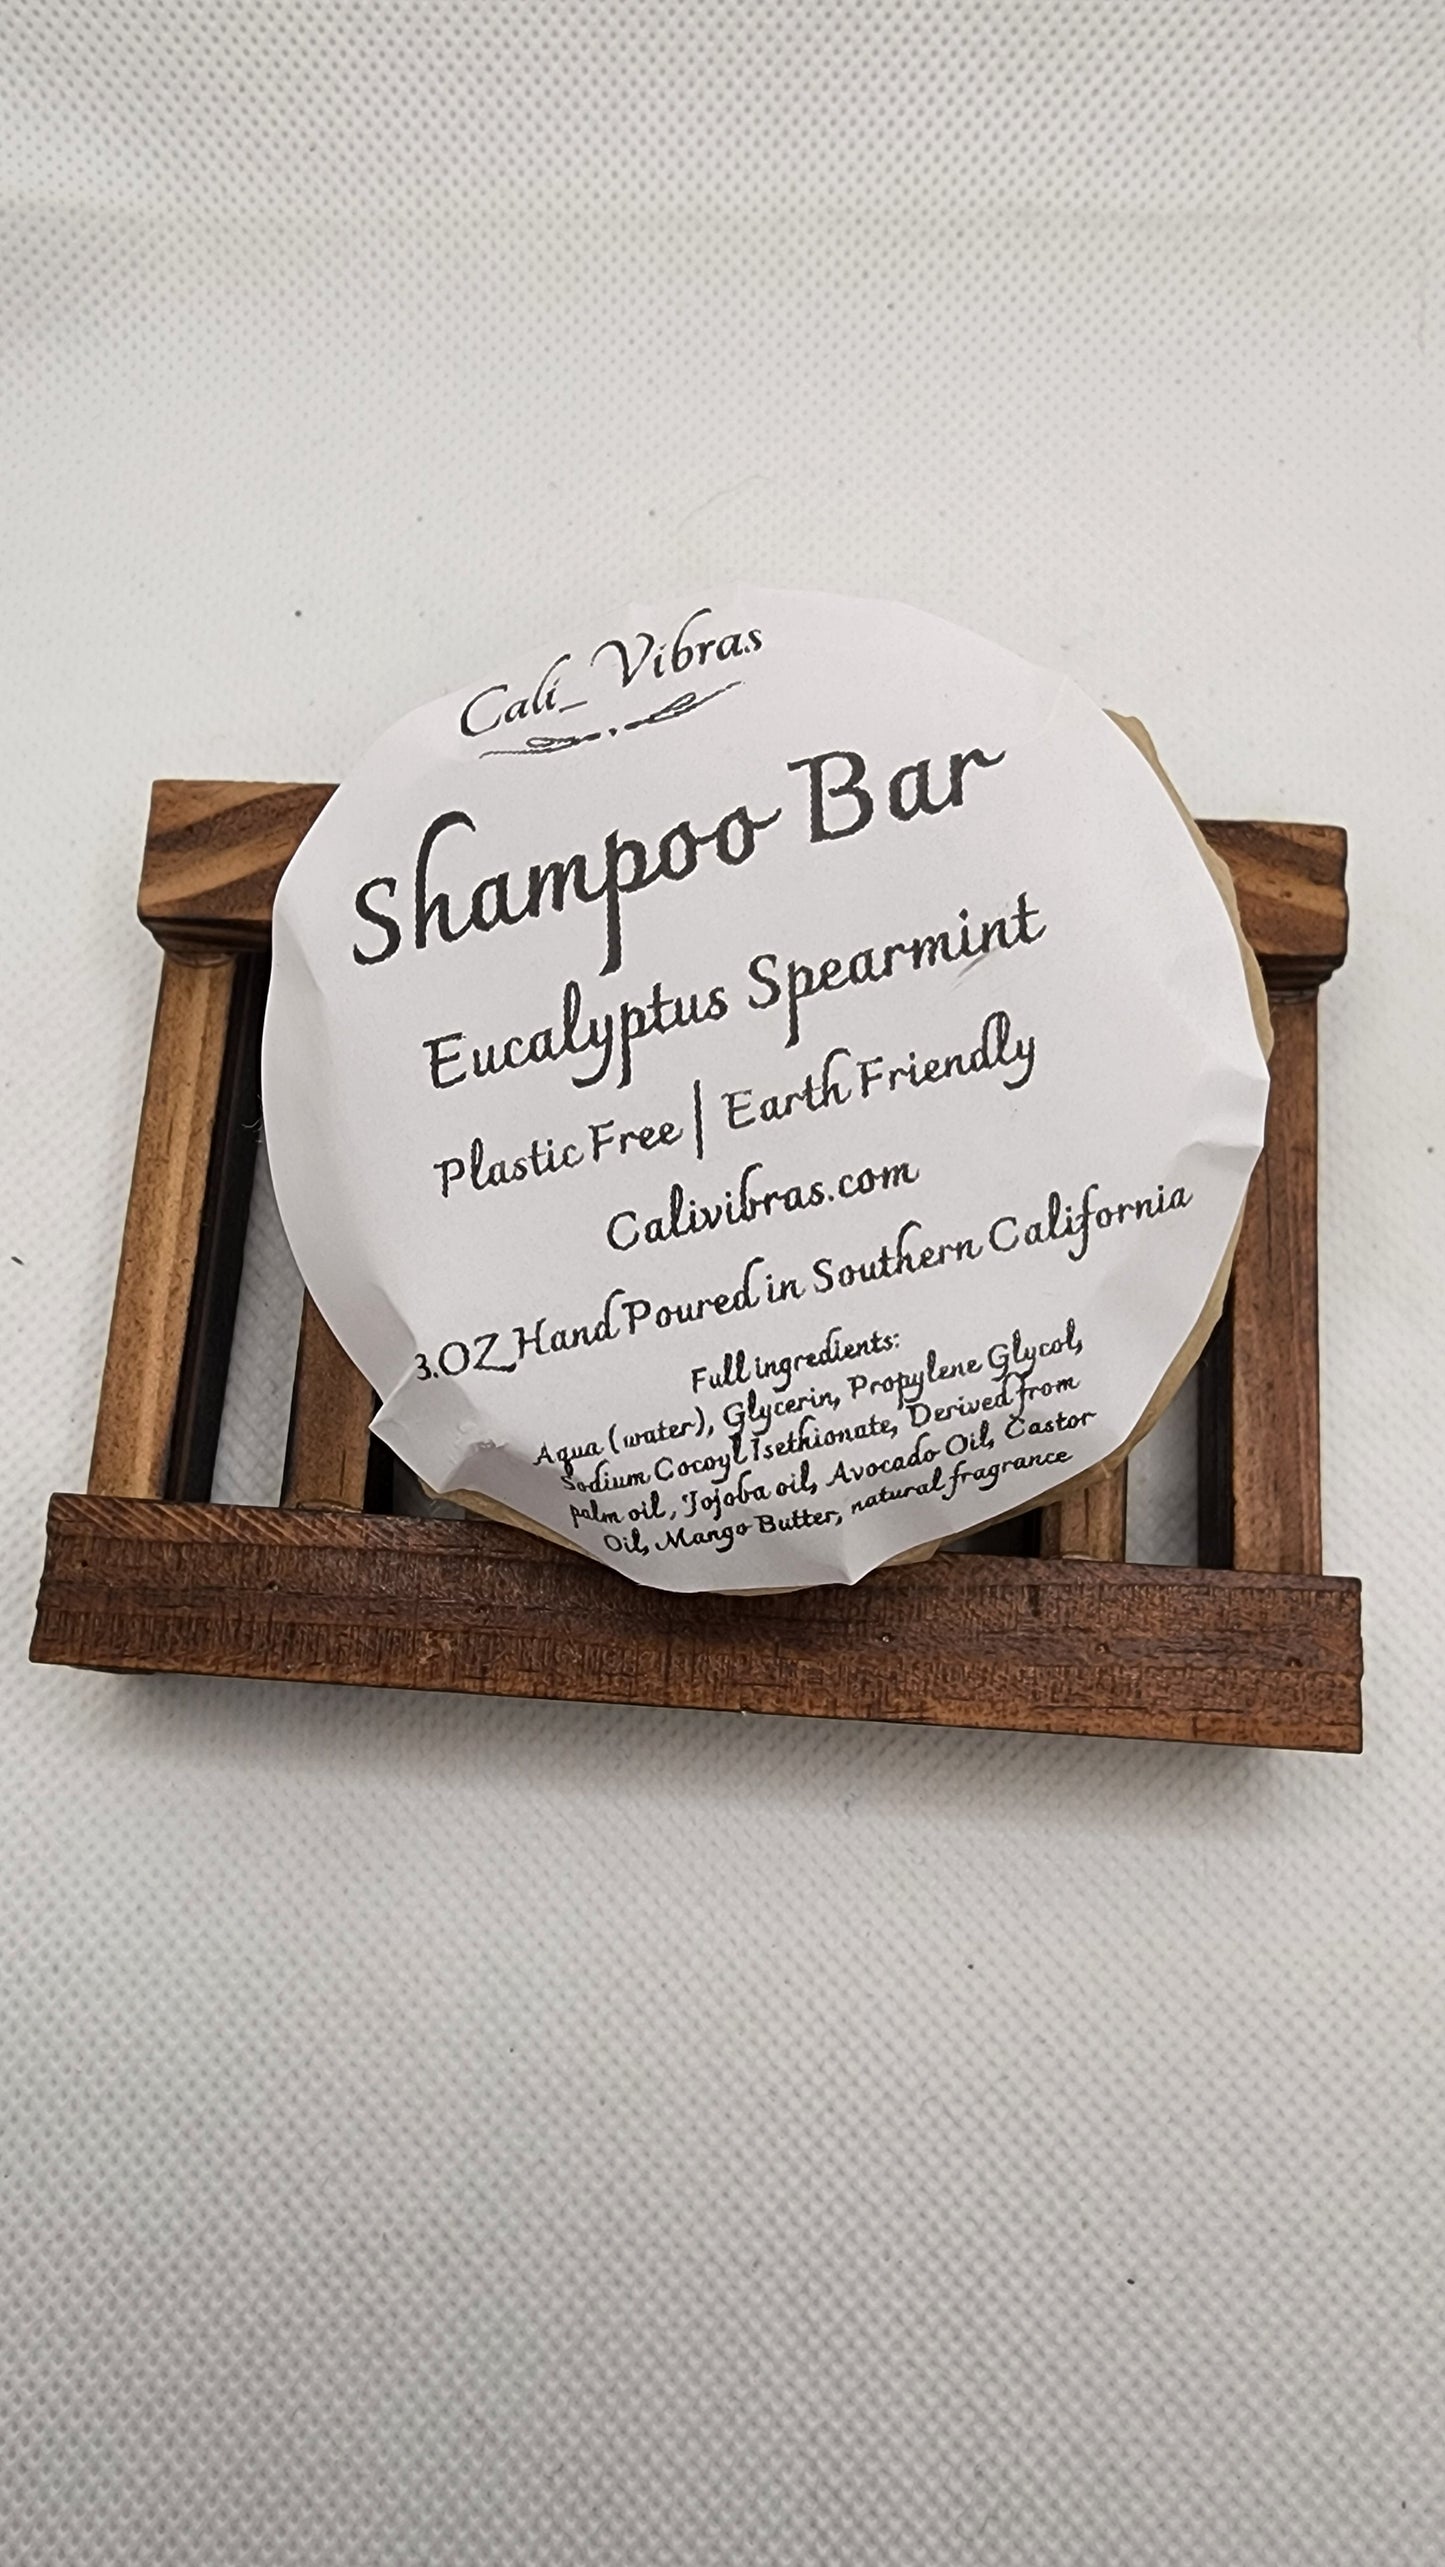 Cali_Vibras
Shampoo Bar
Eucalyptus Spearmint
Plastic Free | Earth Friendly
Calivibras.com
3.OZ Hand Poured in Southern California
Full ingredients:
Aqua (water), Glycerin, Propylene Glycol,
Sodium Cocoyl Isethionate, Derived from
palm oil, Jojoba oil, Avocado Oil, Castor
Oil, Mango Butter, natural fragrance